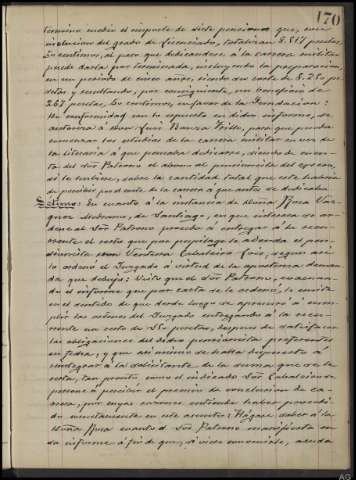 170
término medio el importe de siete pensiones que, con
inclusion del grado de Licenciado, totalizan 8.817 pesetas,
50 centimos, al paso que dedicandose á la carrera militar
puede darla por terminada, incluyendo la preparacion,
en un periodo de cinco años, siendo su coste de 8.250 pe-
setas y resultando, por consiguiente, un beneficio de
567 pesetas, 50 centimos, en favor de la Fundacion:
De conformidad con lo expuesto en dicho informe, se
autoriza á Don Luis para que pueda
comenzar los estudios de la carrera militar en vez de
la literaria á que pensaba dedicarse, siendo de cuen-
ta del Sor Patrono el abono al pensionista del exceso,
si le hubiere, sobre la cantidad total que este habria
de percibir pendiente de la carrera á que antes se dedicaba
Sétimo: En cuanto á la instancia de Doña Rosa Vaz-
quez de Santiago, en que interesa se or-
dene al Sor Patrono proceda á entregar á la recu-
rrente el resto que por prorrateo la adeuda el pen-
sionista Don Ventura segun asi
lo ordenó el Juzgado á virtud de la oportuna deman-
da que dedujo: Visto que el Sor Patrono, evacuan-
do el informe que por carta se le ordenó, lo emite
en el sentido de que desde luego se apresuró á cum-
plir las órdenes del Juzgado entregando á la recu-
rrente un resto de 550 pesetas, despues de satisfacer
las obligaciones del dicho pensionista preferentes
en fecha, y que asi mismo se halla dispuesto á
entregar á la solicitante de la suma que se le
resta, tan pronto como el indicado Sor
pase á percibir el premio de conclusion de ca-
rrera, por cuyas razones entiende haber procedi-
do rectamente en este asunto: Hágase saber á la
Doña Rosa cuanto el Sor Patrono manifiesta en
su informe á fin de que, si vé conveniente, acuda